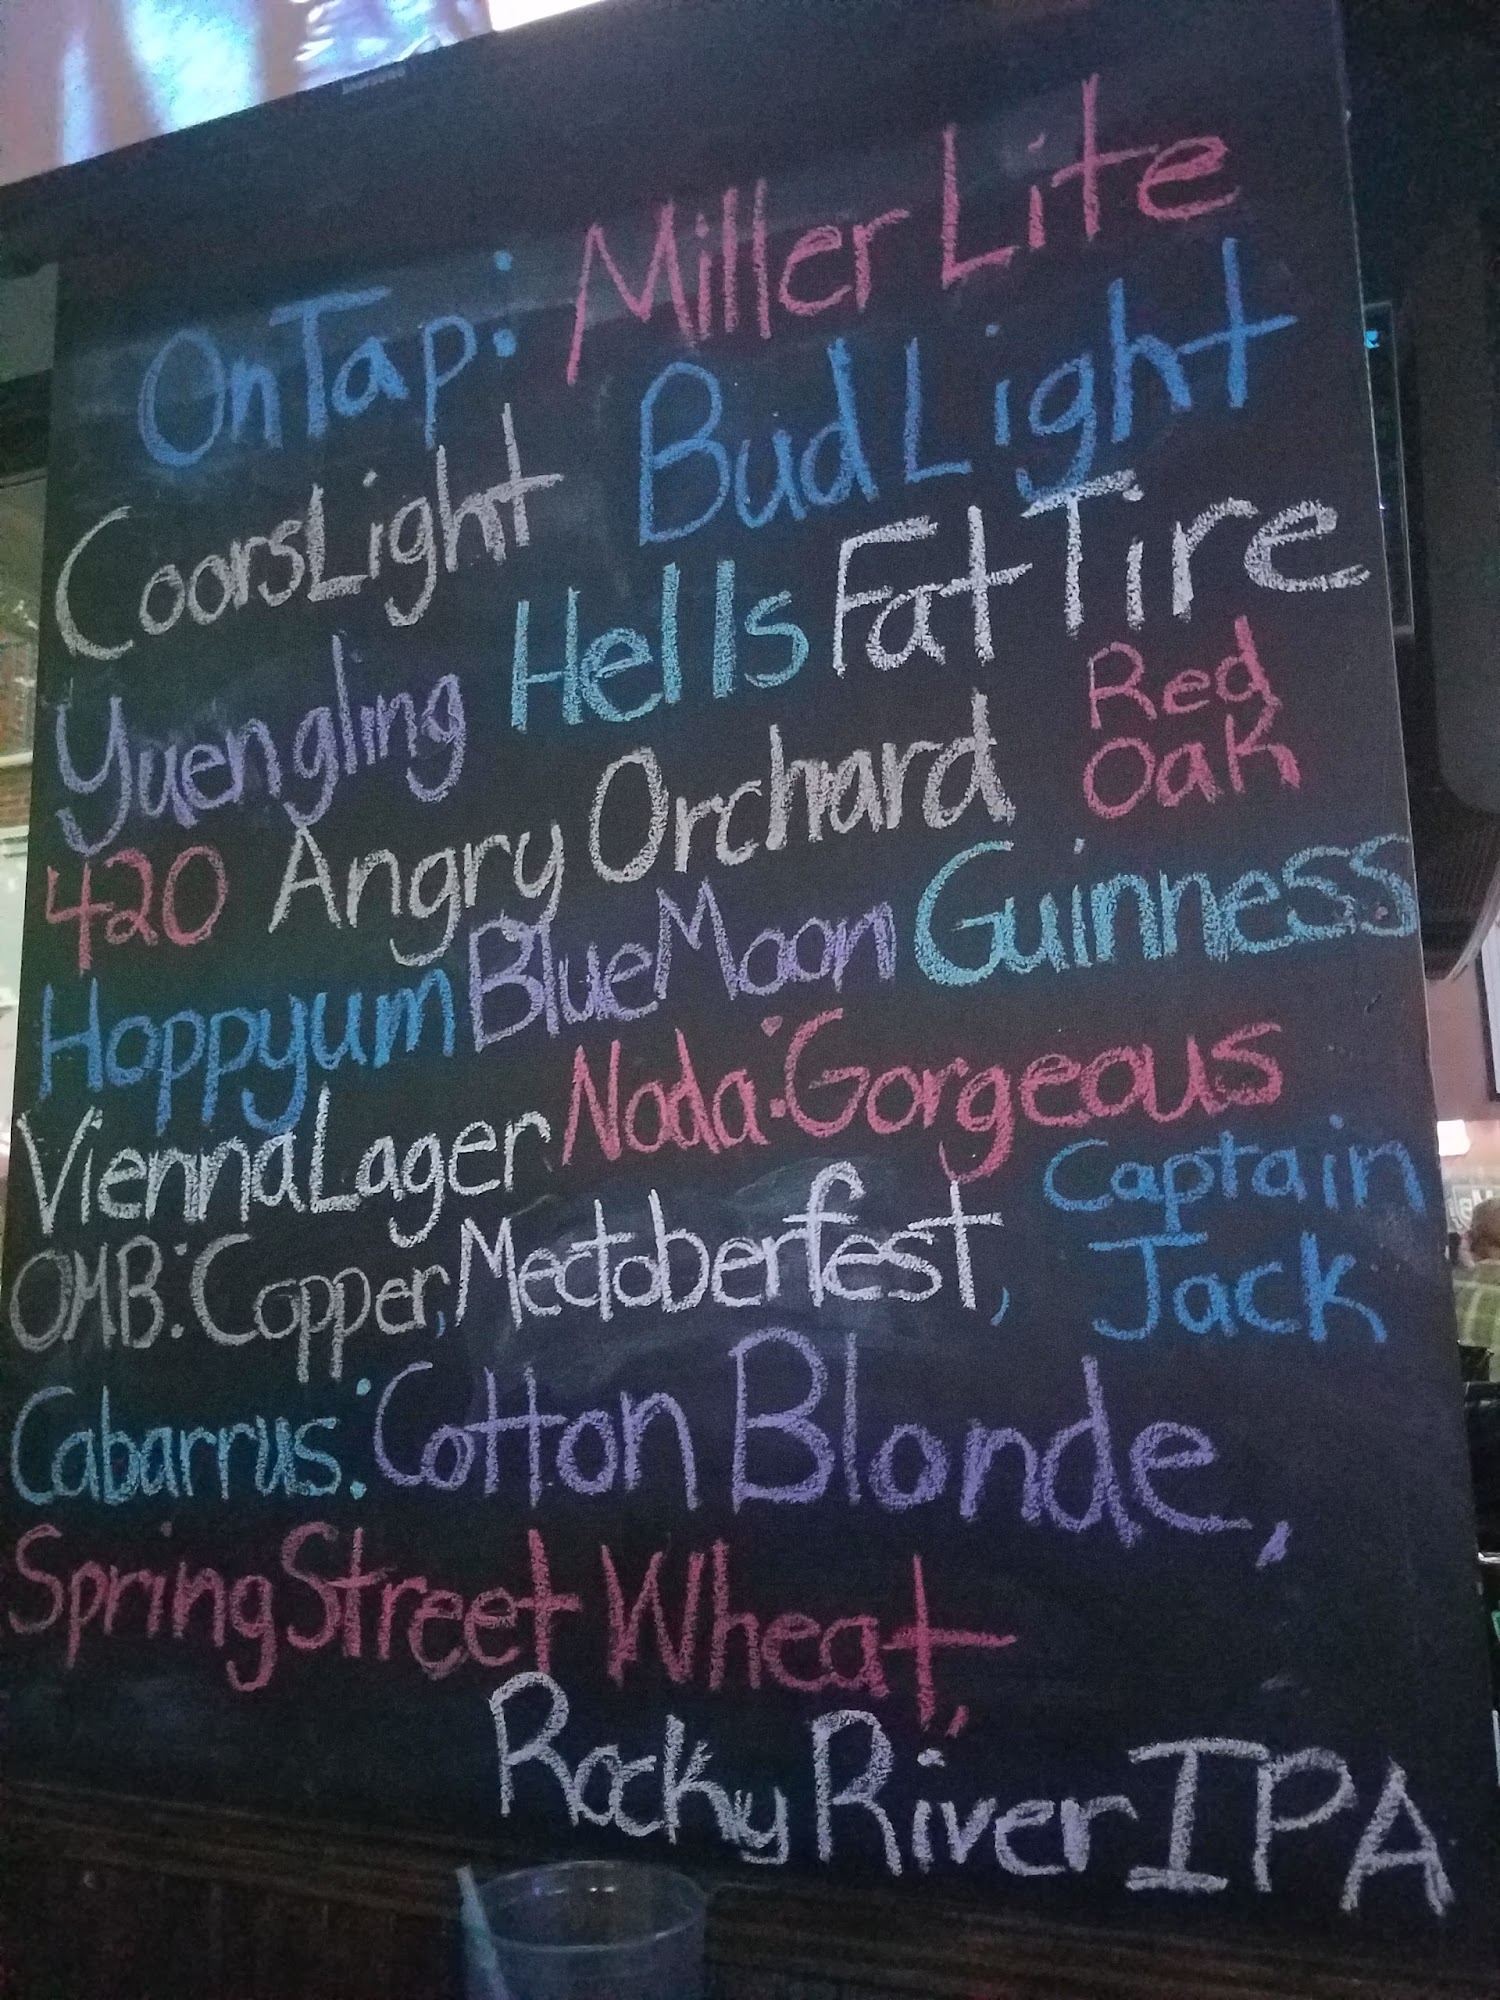 On Tap: Miller Lite
Coors Light Bud Light
Yuengling Hells Fat Tire
420 Angry Orchard Red Oak
Hoppyum Blue Moon Guinness
Vienna Lager Noda: Gorgeous
OMB: Copper, Mectoberfest, Captain Jack
Cabarrus: Cotton Blonde,
Spring Street Wheat,
Rocky River IPA